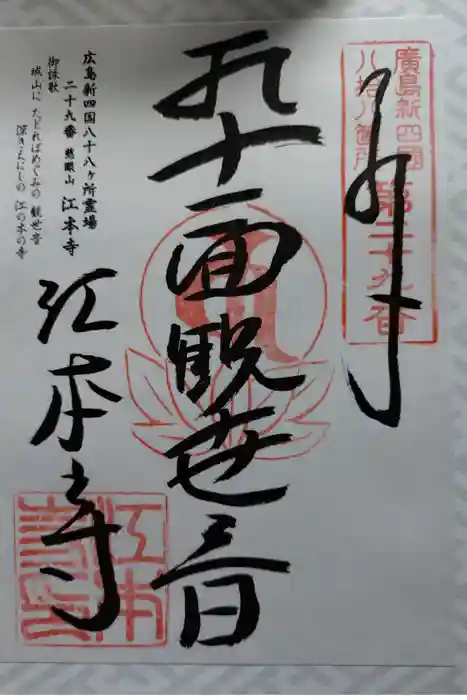 廣島新四國
八拾八箇所
第二十九番
十一面観世音
広島新四国八十八ヶ所霊場
二十九番 慈眼山 江本寺
御詠歌
城山に たどればめぐみの 観世音
深きえにしの 江の本の寺
江本寺
江本